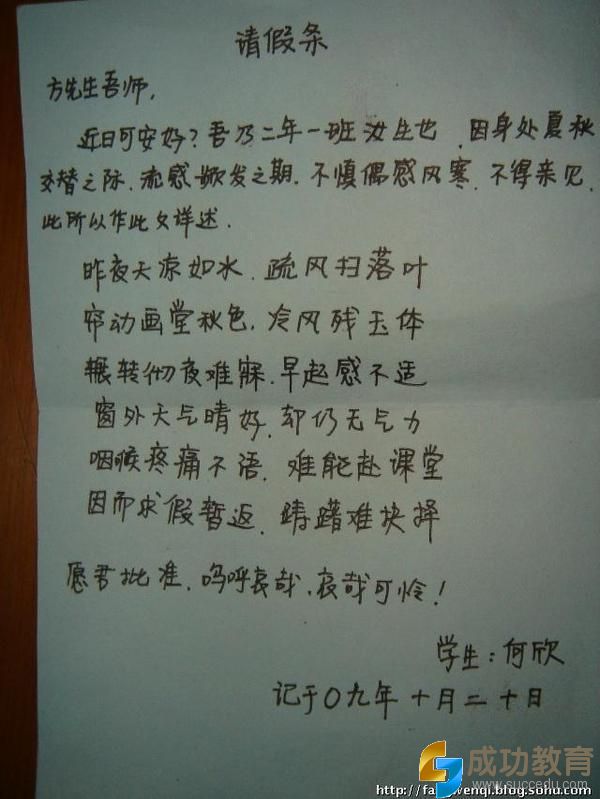 请假条
方先生吾师,
近日可安好?吾乃二年一班汝生也,因身处夏秋
交替之际,流感频发之期,不慎偶感风寒,不得来见,
此所以作此文详述.
昨夜天凉如水,疏风扫落叶
帘动画堂秋色,冷风残玉体
辗转彻夜难寐,早起感不适
窗外天气晴好,却仍无气力
咽喉疼痛不语,难能赴课堂
因而求假暂返,踌躇难抉择
愿君批准,呜呼哀哉,哀哉可怜!
学生:何欣
记于09年十月二十日
成功教育
www.succedu.com
http://fangwenqi.blog.sohu.com